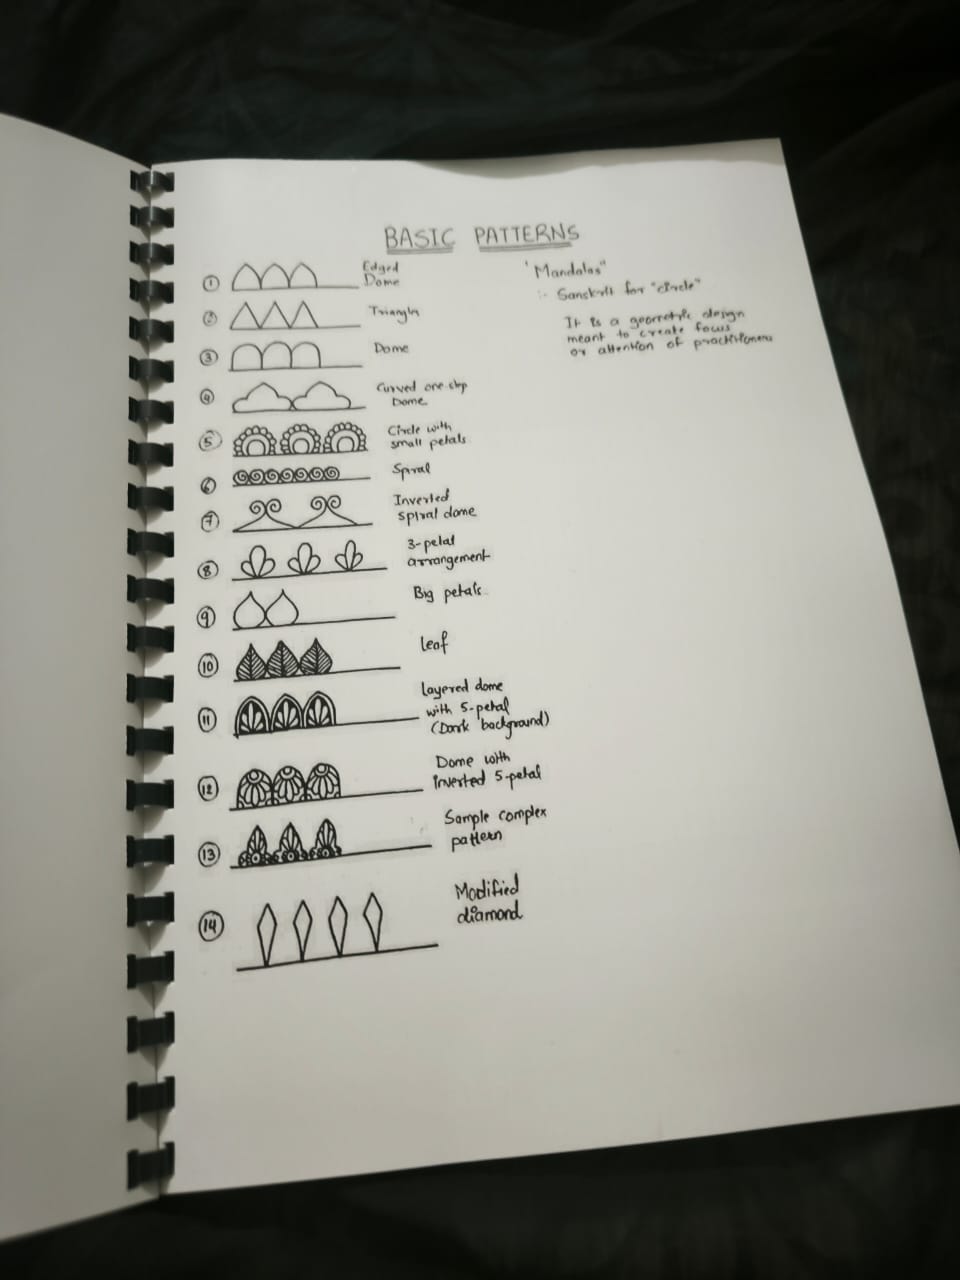 BASIC PATTERNS
"Mandalas"
:- Sanskrit for "circle"
It is a geometric design
meant to create focus
or attention of practitioners
1 Edged
Dome
2 Triangle
3 Dome
4 Curved one-step
Dome
5 Circle with
small petals
6 Spiral
7 Inverted
spiral dome
8 3-petal
arrangement
9 Big petals
10 leaf
11 Layered dome
with 5-petal
(Dark background)
12 Dome with
inverted 5-petal
13 Sample complex
pattern
14 Modified
diamond